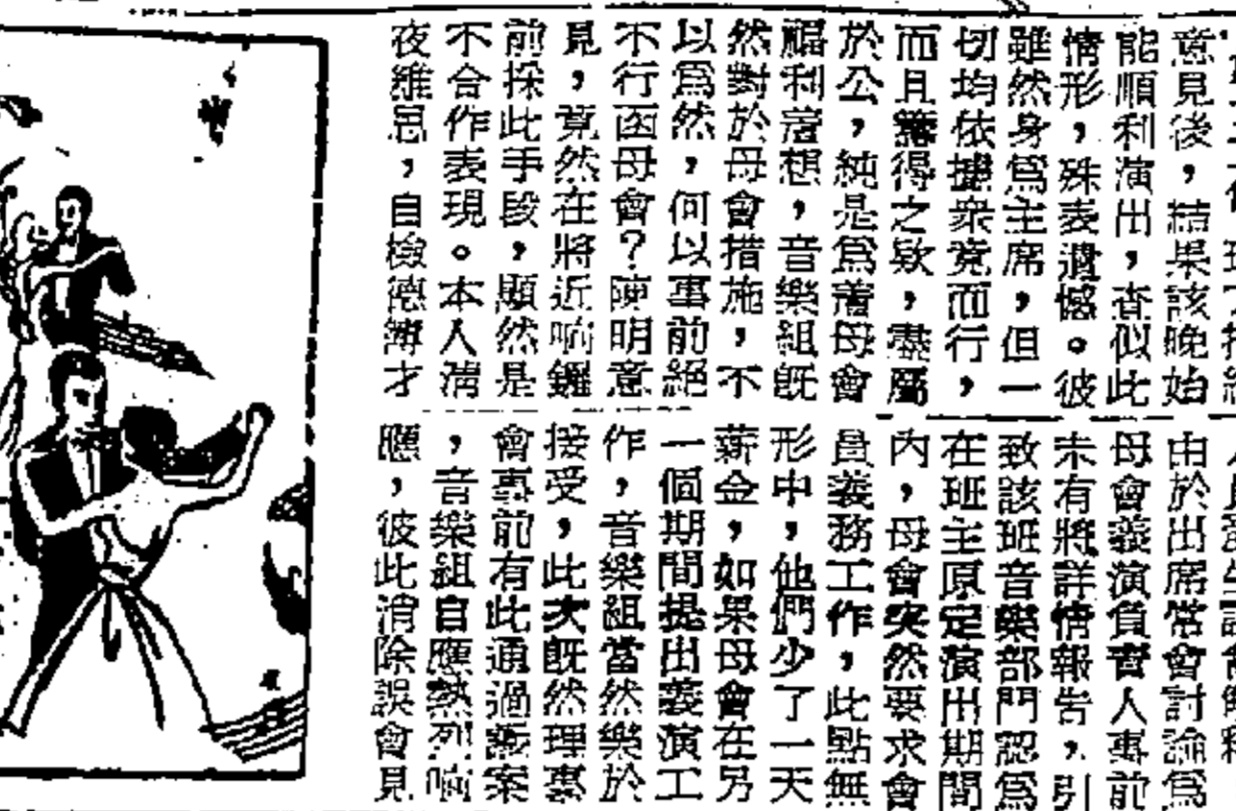 意見後，結果該晚始
能順利演出，查似此
情形，殊表遺憾。彼
雖然身爲主席，但一
切均依據衆竟而行，
而且籌得之欵，盡屬
於公，純是爲着母會
福利着想，音樂組旣
然對於母會措施，不
以爲然，何以事前絕
不行函母會？陳明意
見，竟然在將近响鑼
前採此手段，顯然是
不合作表現。本人淸
夜維思，自檢德薄才
由於出席常會討論爲
母會義演負責人事前
未有將詳情報告，引
致該班音樂部門認爲
在班主原定演出期間
內，母會突然要求會
員義務工作，此點無
形中，他們少了一天
薪金，如果母會在另
一個期間提出義演工
作，音樂組當然樂於
接受，此次旣然理事
會事前有此通過議案
，音樂組自應熱烈响
應，彼此消除誤會見